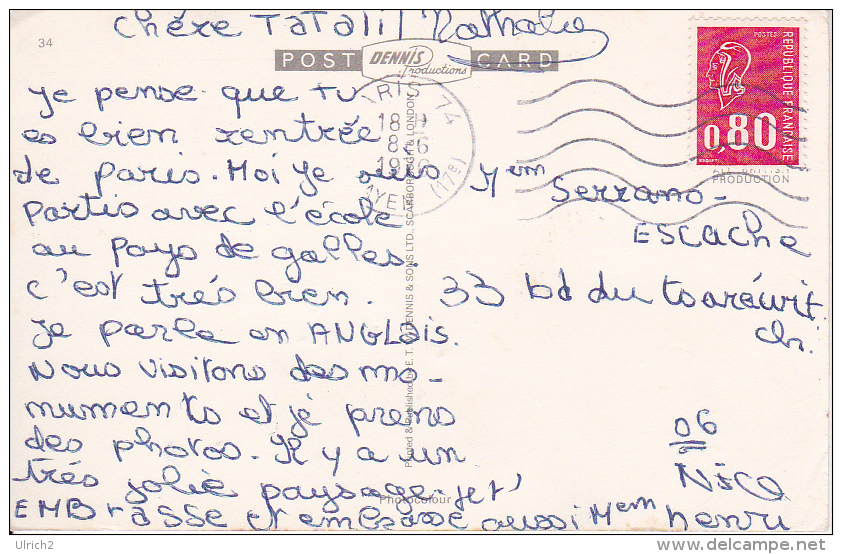 chére TaTali Nathalie
34
POST DENNIS Productions CARD
je pense que tu
es bien rentrée
de paris. Moi je suis
partis avec l'école
au pays de galles.
c'est trés bien.
je parle en ANGLAIS.
Nous visitons des mo-
numents et jé prens
des photos. Il y a un
trés jolie paysage. jet'
EMBrasse et embrasse aussi Mem henri
POSTES
REPUBLIQUE FRANÇAISE
0,80
PARIS 74
18 H
8-6
1976
(17e)
PRODUCTION
Mem Serrano-
ESCACHE
33 bd du
06
Nice
Printed & Published by E. T. W. DENNIS & SONS LTD., SCARBOROUGH & LONDON
Photocolour
Ulrich2
www.delcampe.net